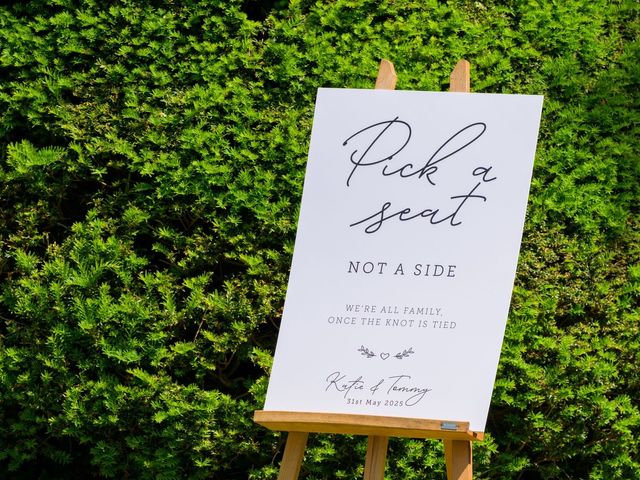 Pick a
seat
NOT A SIDE
WE'RE ALL FAMILY,
ONCE THE KNOT IS TIED
Katie & Tommy
31st May 2025